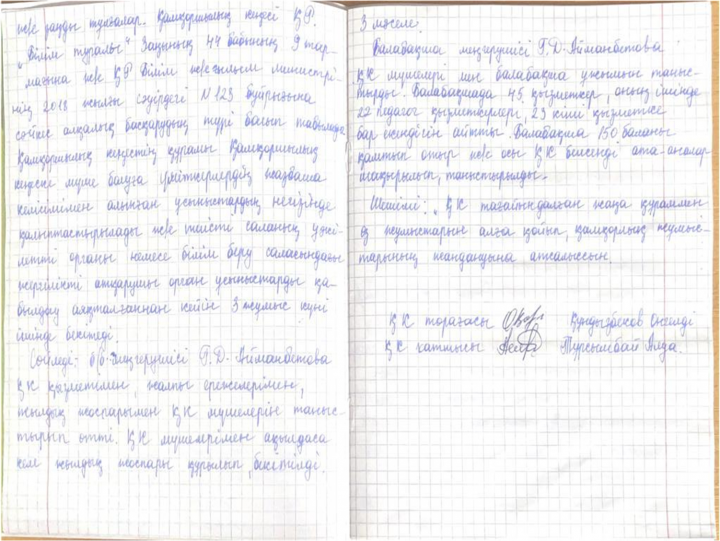 ж/е заңды тұлғалар. Қамқоршылық кеңесі ҚР.
"Білім туралы" Заңының 44 бабының 9 тар-
мағына ж/е ҚР Білім ж/е ғылым министрі-
нің 2013 жылғы сәуірдегі №123 бұйрығына
сәйкес алқалық басқарудың түрі болып табылады
Қамқоршылық кеңестің құралы Қамқоршылық
кеңеске мүше болуға үміткерлердің жазбаша
келісімімен алынған ұсыныстардың негізінде
қалыптастырылады ж/е тиісті саланың уәкі-
летті органы немесе білім беру саласындағы
жергілікті атқарушы орган ұсыныстарды қа-
былдау аяқталғаннан кейін 3 жұмыс күні
ішінде бекітеді.
Сөйледі: б/б меңгерушісі Г.Д. Айманбетова
ҚК қызметімен, жалпы ережелерімен,
жылдық жоспарымен ҚК мүшелерін таныс-
тырып өтті. ҚК мүшелерімен ақылдаса
кел жылдық жоспары құрылып, бекітілді.
3 мәселе:
Балабақша меңгерушісі Г.Д. Айманбетова
ҚК мүшелері мен балабақша ұжымын таныс-
тырды. Балабақшада 45 қызметкер, оның ішінде
22 педагог қызметкерлері, 23 кіші қызметке
бар екендігін айтты. Балабақша 150 баланы
қамтып отыр ж/е осы ҚК белсенді ата-аналар
шақырылып, таныстырылды.
Шешімі: ҚК тағайындалған жаңа құраммен
өз жұмыстарын алға қойып, қамқорлық жұмыс-
тарының жандануына атсалыссын.
ҚК төрағасы Құндызбаков Оңгелді
ҚК хатшысы Тұрсынбай Алда.